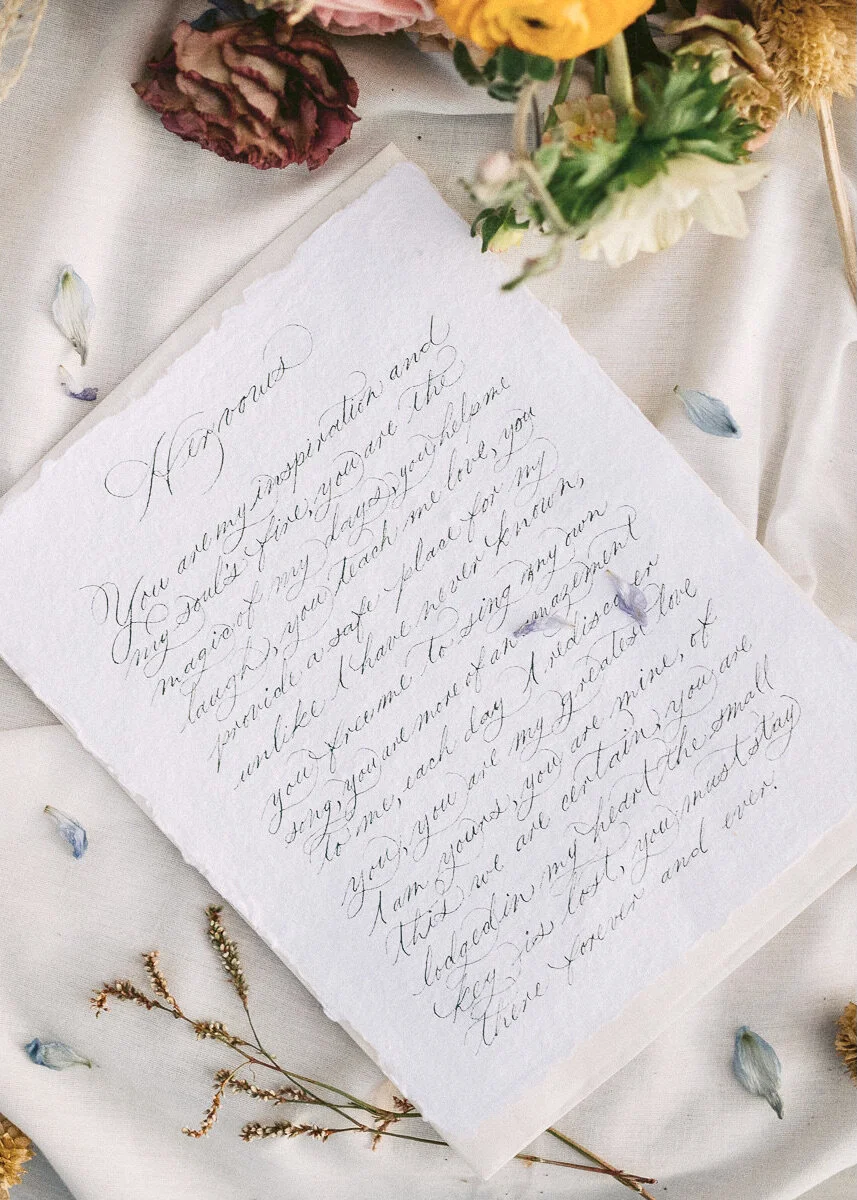 Nervous
You are my inspiration and
my soul's fire, you are the
magic of my days, you help me
laugh, you teach me love, you
provide a safe place for my
unlike I have never known,
you free me to sing my own
song, you are more of an amazement
to me, each day I rediscover
you, you are my greatest love
I am yours, you are mine, of
this we are certain, you are
lodged in my heart the small
key is lost, you must stay
there forever and ever.